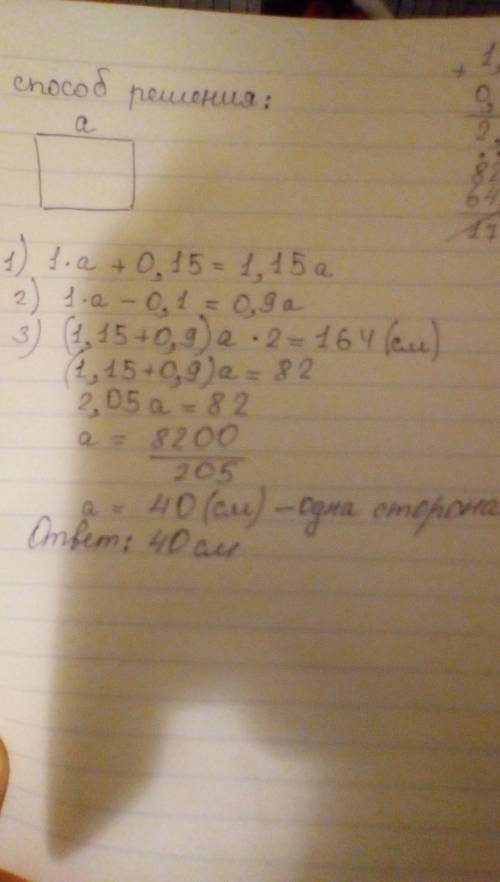 способ решения:
a
1) 1·a + 0,15 = 1,15a
2) 1·a - 0,1 = 0,9a
3) (1,15+0,9)a · 2 = 164 (см)
(1,15+0,9)a = 82
2,05a = 82
a = 8200
205
a = 40 (см) - одна сторона
Ответ: 40 см
+ 1,
0,
2,
82
64
17